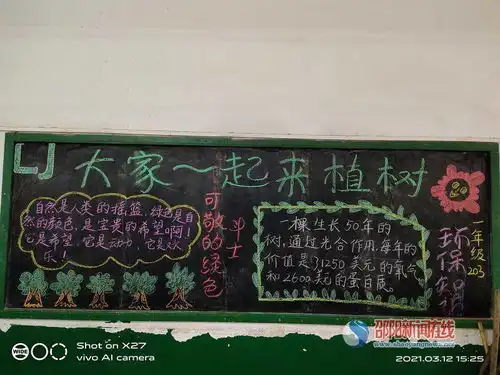 大家一起来植树
自然是人类的摇篮,绿色是自
然的颜色,是宝贵的希望啊!
它是希望,它是动力,它是欢
乐!
可敬的绿色
斗士
一棵生长50年的
树,通过光合作用,每年的
价值是31250美元的氧气
和2600美元的蛋白质。
环保知识
一年级203
WIDE
Shot on X27
vivo AI camera
邵阳新闻在线
2021.03.12 15:25